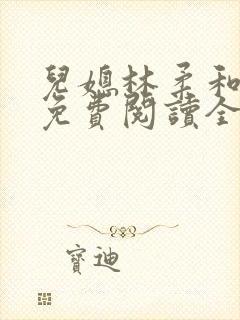 兒媳林柔和
免費閱讀全
寶迪